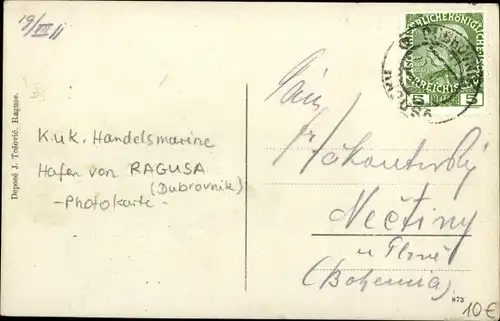 19/VII 11
KAISERLICHE KÖNIGLICHE
ÖSTERREICHISCHE
5 5
DUBROVNIK
RAGUSA
Deposé J. Tošović, Raguse.
K.u.K. Handelsmarine
Hafen von RAGUSA
(Dubrovnik)
- Photokarte -
Nečtiny
u Plzně
(Bohemia)
873
10€